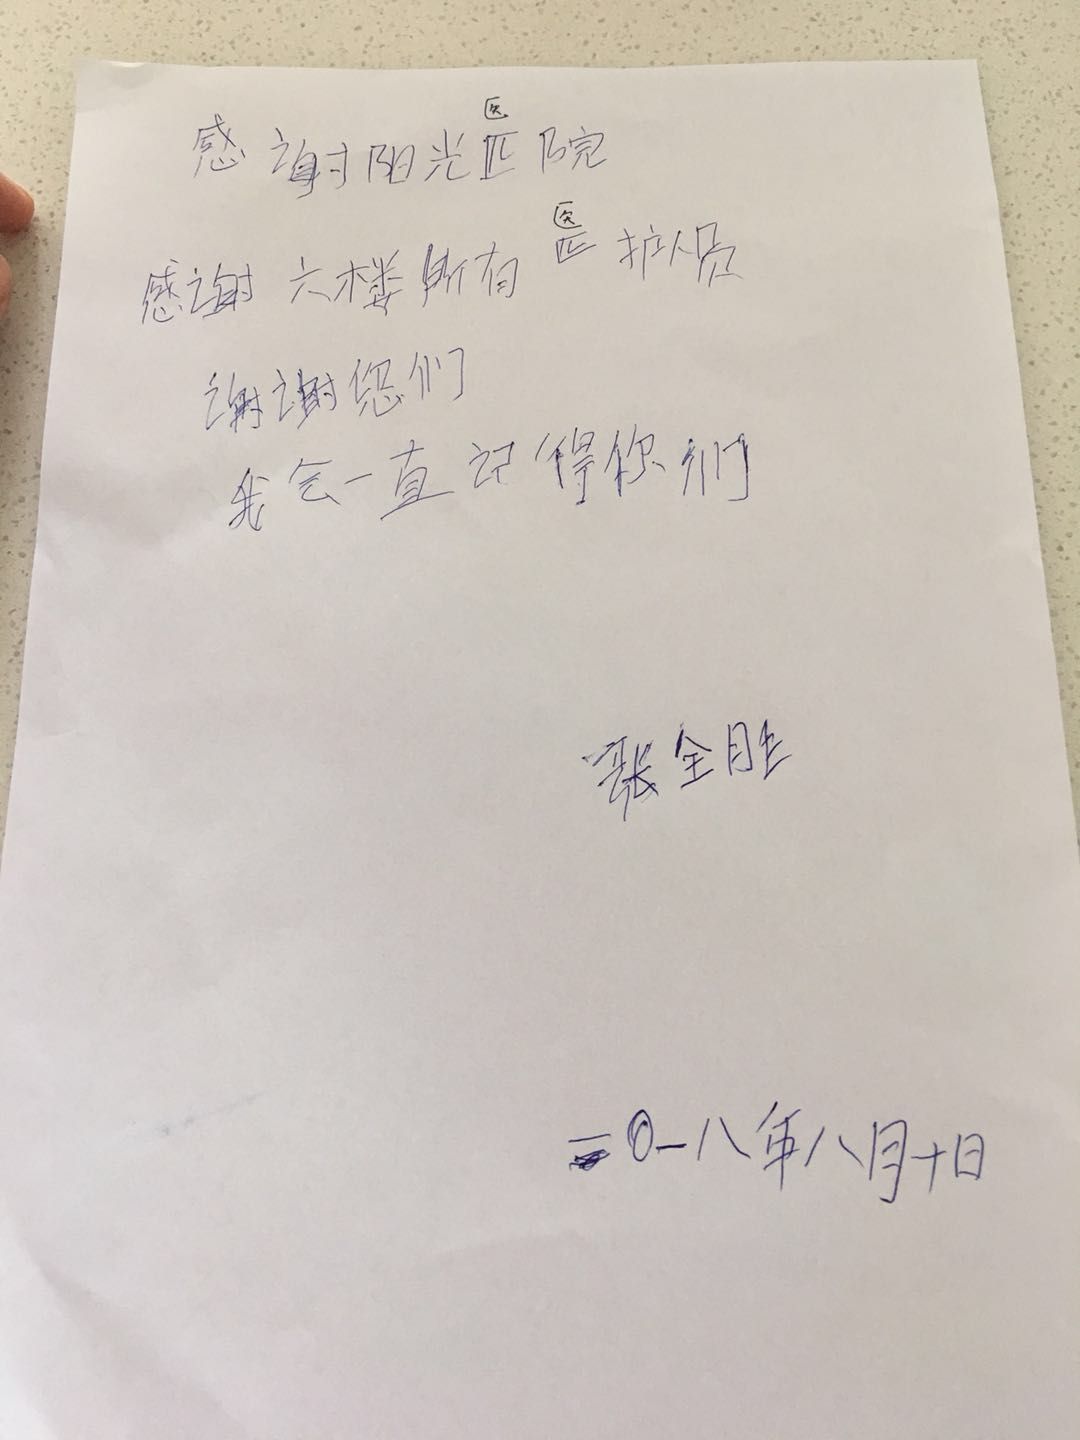 感谢阳光医院
感谢六楼所有医护人员
谢谢您们
我会一直记得你们
张全胜
二〇一八年八月十日